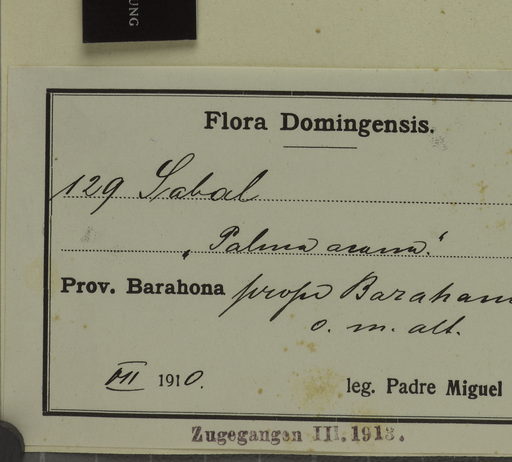 UNG
Flora Domingensis.
129 Sabal
„Palma arana."
Prov. Barahona prope Baraham
o. m. alt.
VII 1910.
leg. Padre Miguel
Zugegangen III. 1913.